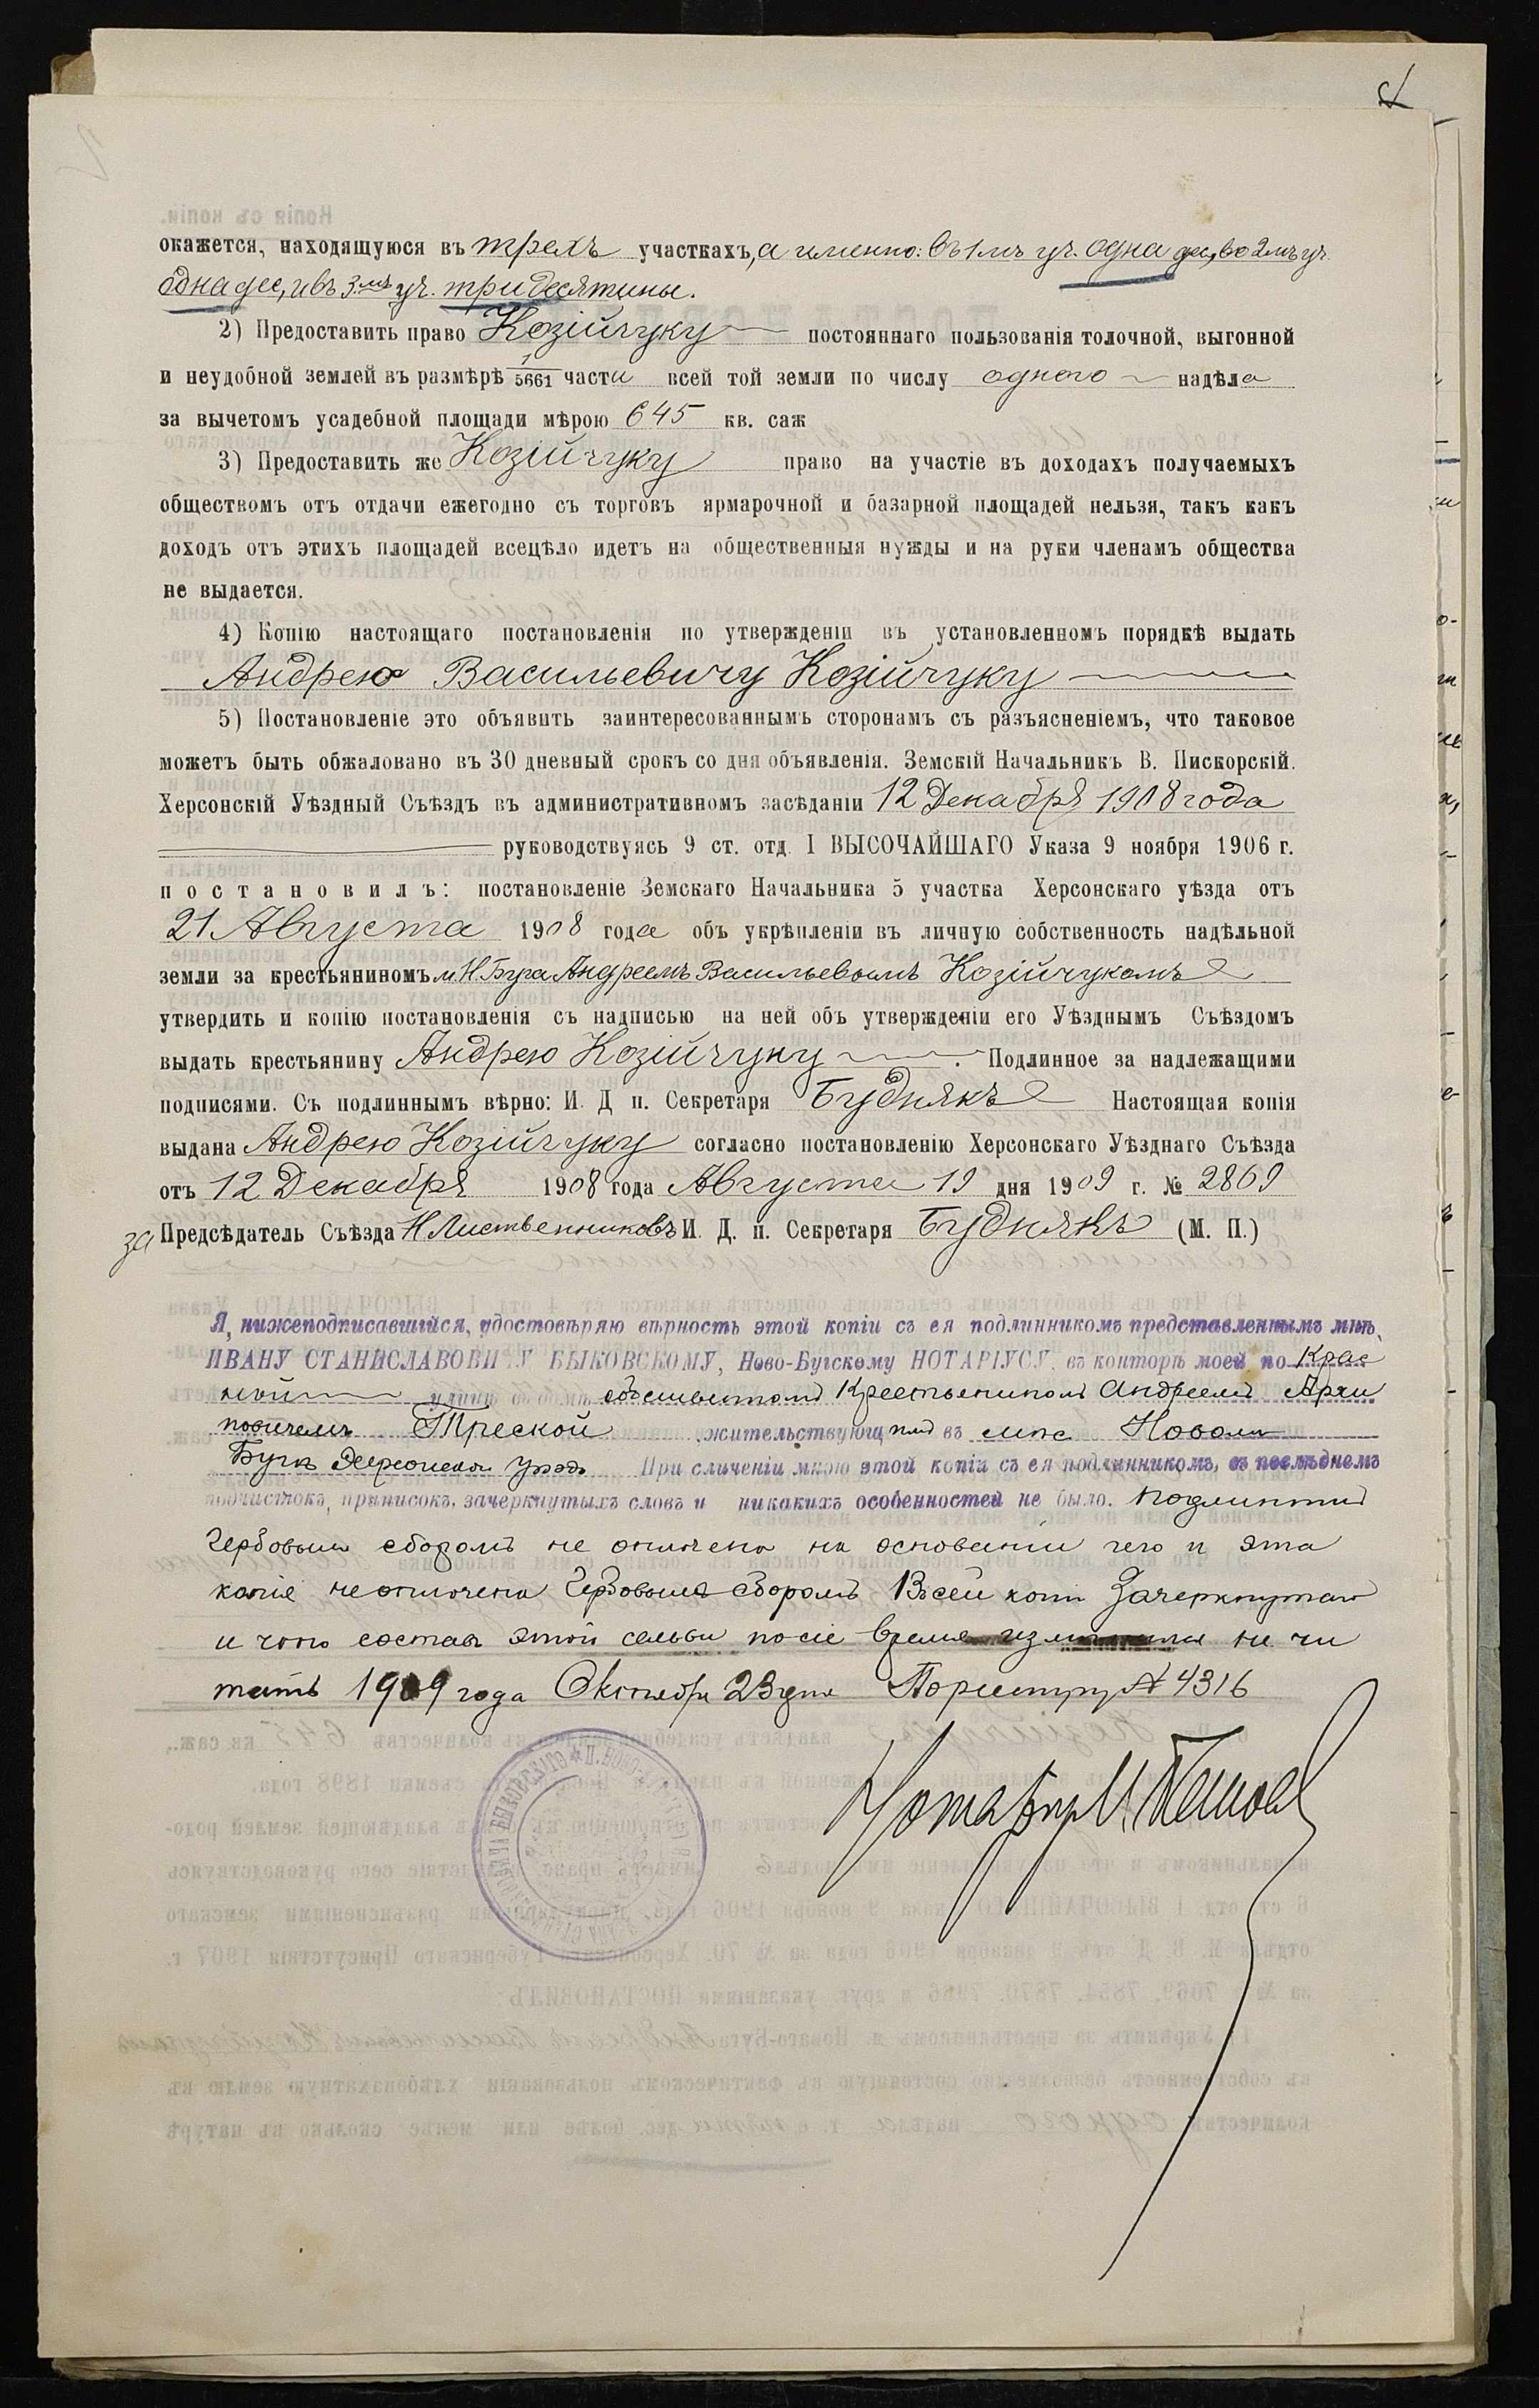 окажется, находящуюся въ трехъ участкахъ, а именно: въ 1мъ уч. одна дес, во 2мъ уч.
одна дес, и въ 3.мъ уч. три десятины.
2) Предоставить право Козійчуку постояннаго пользованія толочной, выгонной
и неудобной землей въ размѣрѣ 1/5661 части всей той земли по числу одного надѣла
за вычетомъ усадебной площади мѣрою 645 кв. саж
3) Предоставить же Козійчуку право на участіе въ доходахъ получаемыхъ
обществомъ отъ отдачи ежегодно съ торговъ ярмарочной и базарной площадей нельзя, такъ какъ
доходъ отъ этихъ площадей всецѣло идетъ на общественныя нужды и на руки членамъ общества
не выдается.
4) Копію настоящаго постановленія по утвержденіи въ установленномъ порядкѣ выдать
Андрею Васильевичу Козійчуку
5) Постановленіе это объявить заинтересованнымъ сторонамъ съ разъясненіемъ, что таковое
можетъ быть обжаловано въ 30 дневный срокъ со дня объявленія. Земскій Начальникъ В. Пискорскій.
Херсонскій Уѣздный Съѣздъ въ административномъ засѣданіи 12 Декабря 1908 года
руководствуясь 9 ст. отд. I ВЫСОЧАЙШАГО Указа 9 ноября 1906 г.
постановилъ: постановленіе Земскаго Начальника 5 участка Херсонскаго уѣзда отъ
21 Августа 1908 года объ укрѣпленіи въ личную собственность надѣльной
земли за крестьяниномъ м. Н. Буга Андреемъ Васильевымъ Козійчукомъ
утвердить и копію постановленія съ надписью на ней объ утвержденіи его Уѣзднымъ Съѣздомъ
выдать крестьянину Андрею Козійчуку. Подлинное за надлежащими
подписями. Съ подлиннымъ вѣрно: И. Д п. Секретаря Буднякъ Настоящая копія
выдана Андрею Козійчуку согласно постановленію Херсонскаго Уѣзднаго Съѣзда
отъ 12 Декабря 1908 года Августа 19 дня 1909 г. № 2869
за Предсѣдатель Съѣзда Н Лиственниковъ И. Д. п. Секретаря Буднякъ (М. П.)
Я, нижеподписавшійся, удостовѣряю вѣрность этой копіи съ ея подлинникомъ представленнымъ мнѣ,
ИВАНУ СТАНИСЛАВОВИЧУ БЫКОВСКОМУ, Ново-Бугскому НОТАРІУСУ, въ конторѣ моей по Крас
ной улицѣ крестьяниномъ Андреемъ Архи
повичемъ Треской жительствующимъ въ мѣс Новомъ
Бугѣ Херсонскаго уѣзда При сличеніи мною этой копіи съ ея подлинникомъ, въ послѣднемъ
подчистокъ, приписокъ, зачеркнутыхъ словъ и никакихъ особенностей не было. Подлинный
гербовымъ сборомъ не оплаченъ на основаніи чего и эта
копія не оплачена гербовымъ сборомъ Въ сей копіи зачеркнутое
и что составъ этой семьи после время не чи
тать 1909 года Октября 23 дня По реестру № 4316
Нотаріусъ